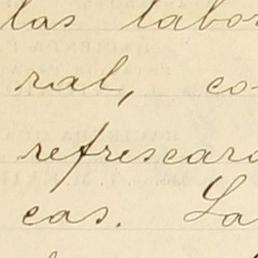 las labo
ral, co-
refrescar
cas. La